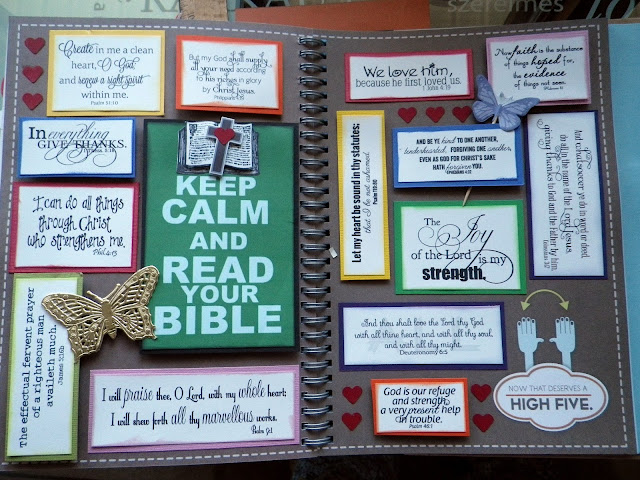 szerelmes
Create in me a clean
heart, O God,
and renew a right spirit
within me.
Psalm 51:10
But my God shall supply
all your need according
to his riches in glory
by Christ Jesus.
Philippians 4:19
In everything
GIVE THANKS.
I can do all things
through Christ
who strengthens me.
Phil. 4:13
The effectual fervent prayer
of a righteous man
availeth much.
James 5:16b
KEEP
CALM
AND
READ
YOUR
BIBLE
I will praise thee, O Lord, with my whole heart;
I will shew forth all thy marvellous works.
Psalm 9:1
We love him,
because he first loved us.
1 John 4:19
Now faith is the substance
of things hoped for,
the evidence
of things not seen.
Let my heart be sound in thy statutes;
that I be not ashamed.
Psalm 119:80
AND BE YE kind TO ONE ANOTHER,
tenderhearted, FORGIVING ONE another,
EVEN AS GOD FOR CHRIST'S SAKE
HATH forgiven YOU.
EPHESIANS 4:32
And whatsoever ye do in word or deed,
do all in the name of the Lord Jesus,
giving thanks to God and the Father by him.
Colossians 3:17
The Joy
of the Lord is my
strength.
And thou shalt love the Lord thy God
with all thine heart, and with all thy soul,
and with all thy might.
Deuteronomy 6:5
God is our refuge
and strength,
a very present help
in trouble.
Psalm 46:1
NOW THAT DESERVES A
HIGH FIVE.